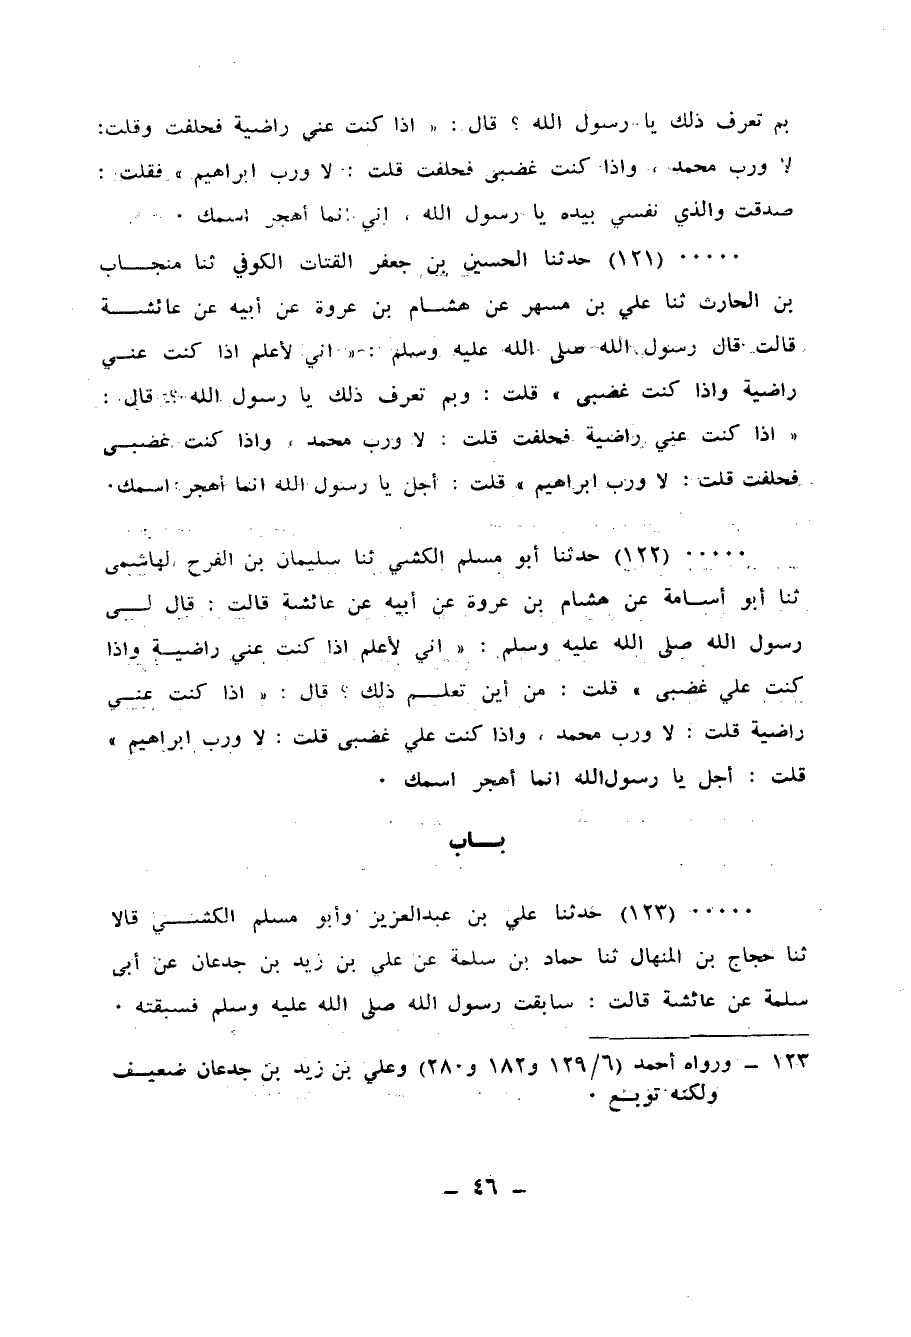 بم تعرف ذلك يا رسول الله ؟ قال : « اذا كنت عني راضية فحلفت وقلت:
لا ورب محمد ، واذا كنت غضبى فحلفت قلت : لا ورب ابراهيم » فقلت :
صدقت والذي نفسي بيده يا رسول الله ، إني انما أهجر اسمك ٠
٠٠٠٠٠ (١٢١) حدثنا الحسين بن جعفر القتات الكوفي ثنا منجـــاب
بن الحارث ثنا علي بن مسهر عن هشـام بن عروة عن أبيه عن عائشـــة
قالت قال رسول الله صلى الله عليه وسلم : « اني لأعلم اذا كنت عنـي
راضية واذا كنت غضبى » قلت : وبم تعرف ذلك يا رسول الله ؟ قال :
« اذا كنت عني راضية فحلفت قلت : لا ورب محمد ، واذا كنت غضبـــى
فحلفت قلت : لا ورب ابراهيم » قلت : أجل يا رسول الله انما أهجر اسمك٠
٠٠٠٠٠ (١٢٢) حدثنا أبو مسلم الكشي ثنا سليمان بن الفرج الهاشمى
ثنا أبو أســامة عن هشام بن عروة عن أبيه عن عائشة قالت : قال لـــى
رسول الله صلى الله عليه وسلم : « اني لأعلم اذا كنت عني راضيـة واذا
كنت علي غضبى » قلت : من أين تعلـــم ذلك ؟ قال : « اذا كنت عنـــي
راضية قلت : لا ورب محمد ، واذا كنت علي غضبى قلت : لا ورب ابراهيم »
قلت : أجل يا رسول الله انما أهجر اسمك ٠
بـــاب
٠٠٠٠٠ (١٢٣) حدثنا علي بن عبدالعزيز وأبو مسلم الكشـــي قالا
ثنا حجاج بن المنهال ثنا حماد بن سلمة عن علي بن زيد بن جدعان عن أبى
سلمة عن عائشة قالت : سابقت رسول الله صلى الله عليه وسلم فسبقته ٠
١٢٣ ــ ورواه أحمد (١٢٩/٦ و١٨٢ و٢٨٠) وعلي بن زيد بن جدعان ضعيـف
ولكنه توبـع ٠
ــ ٤٦ ــ